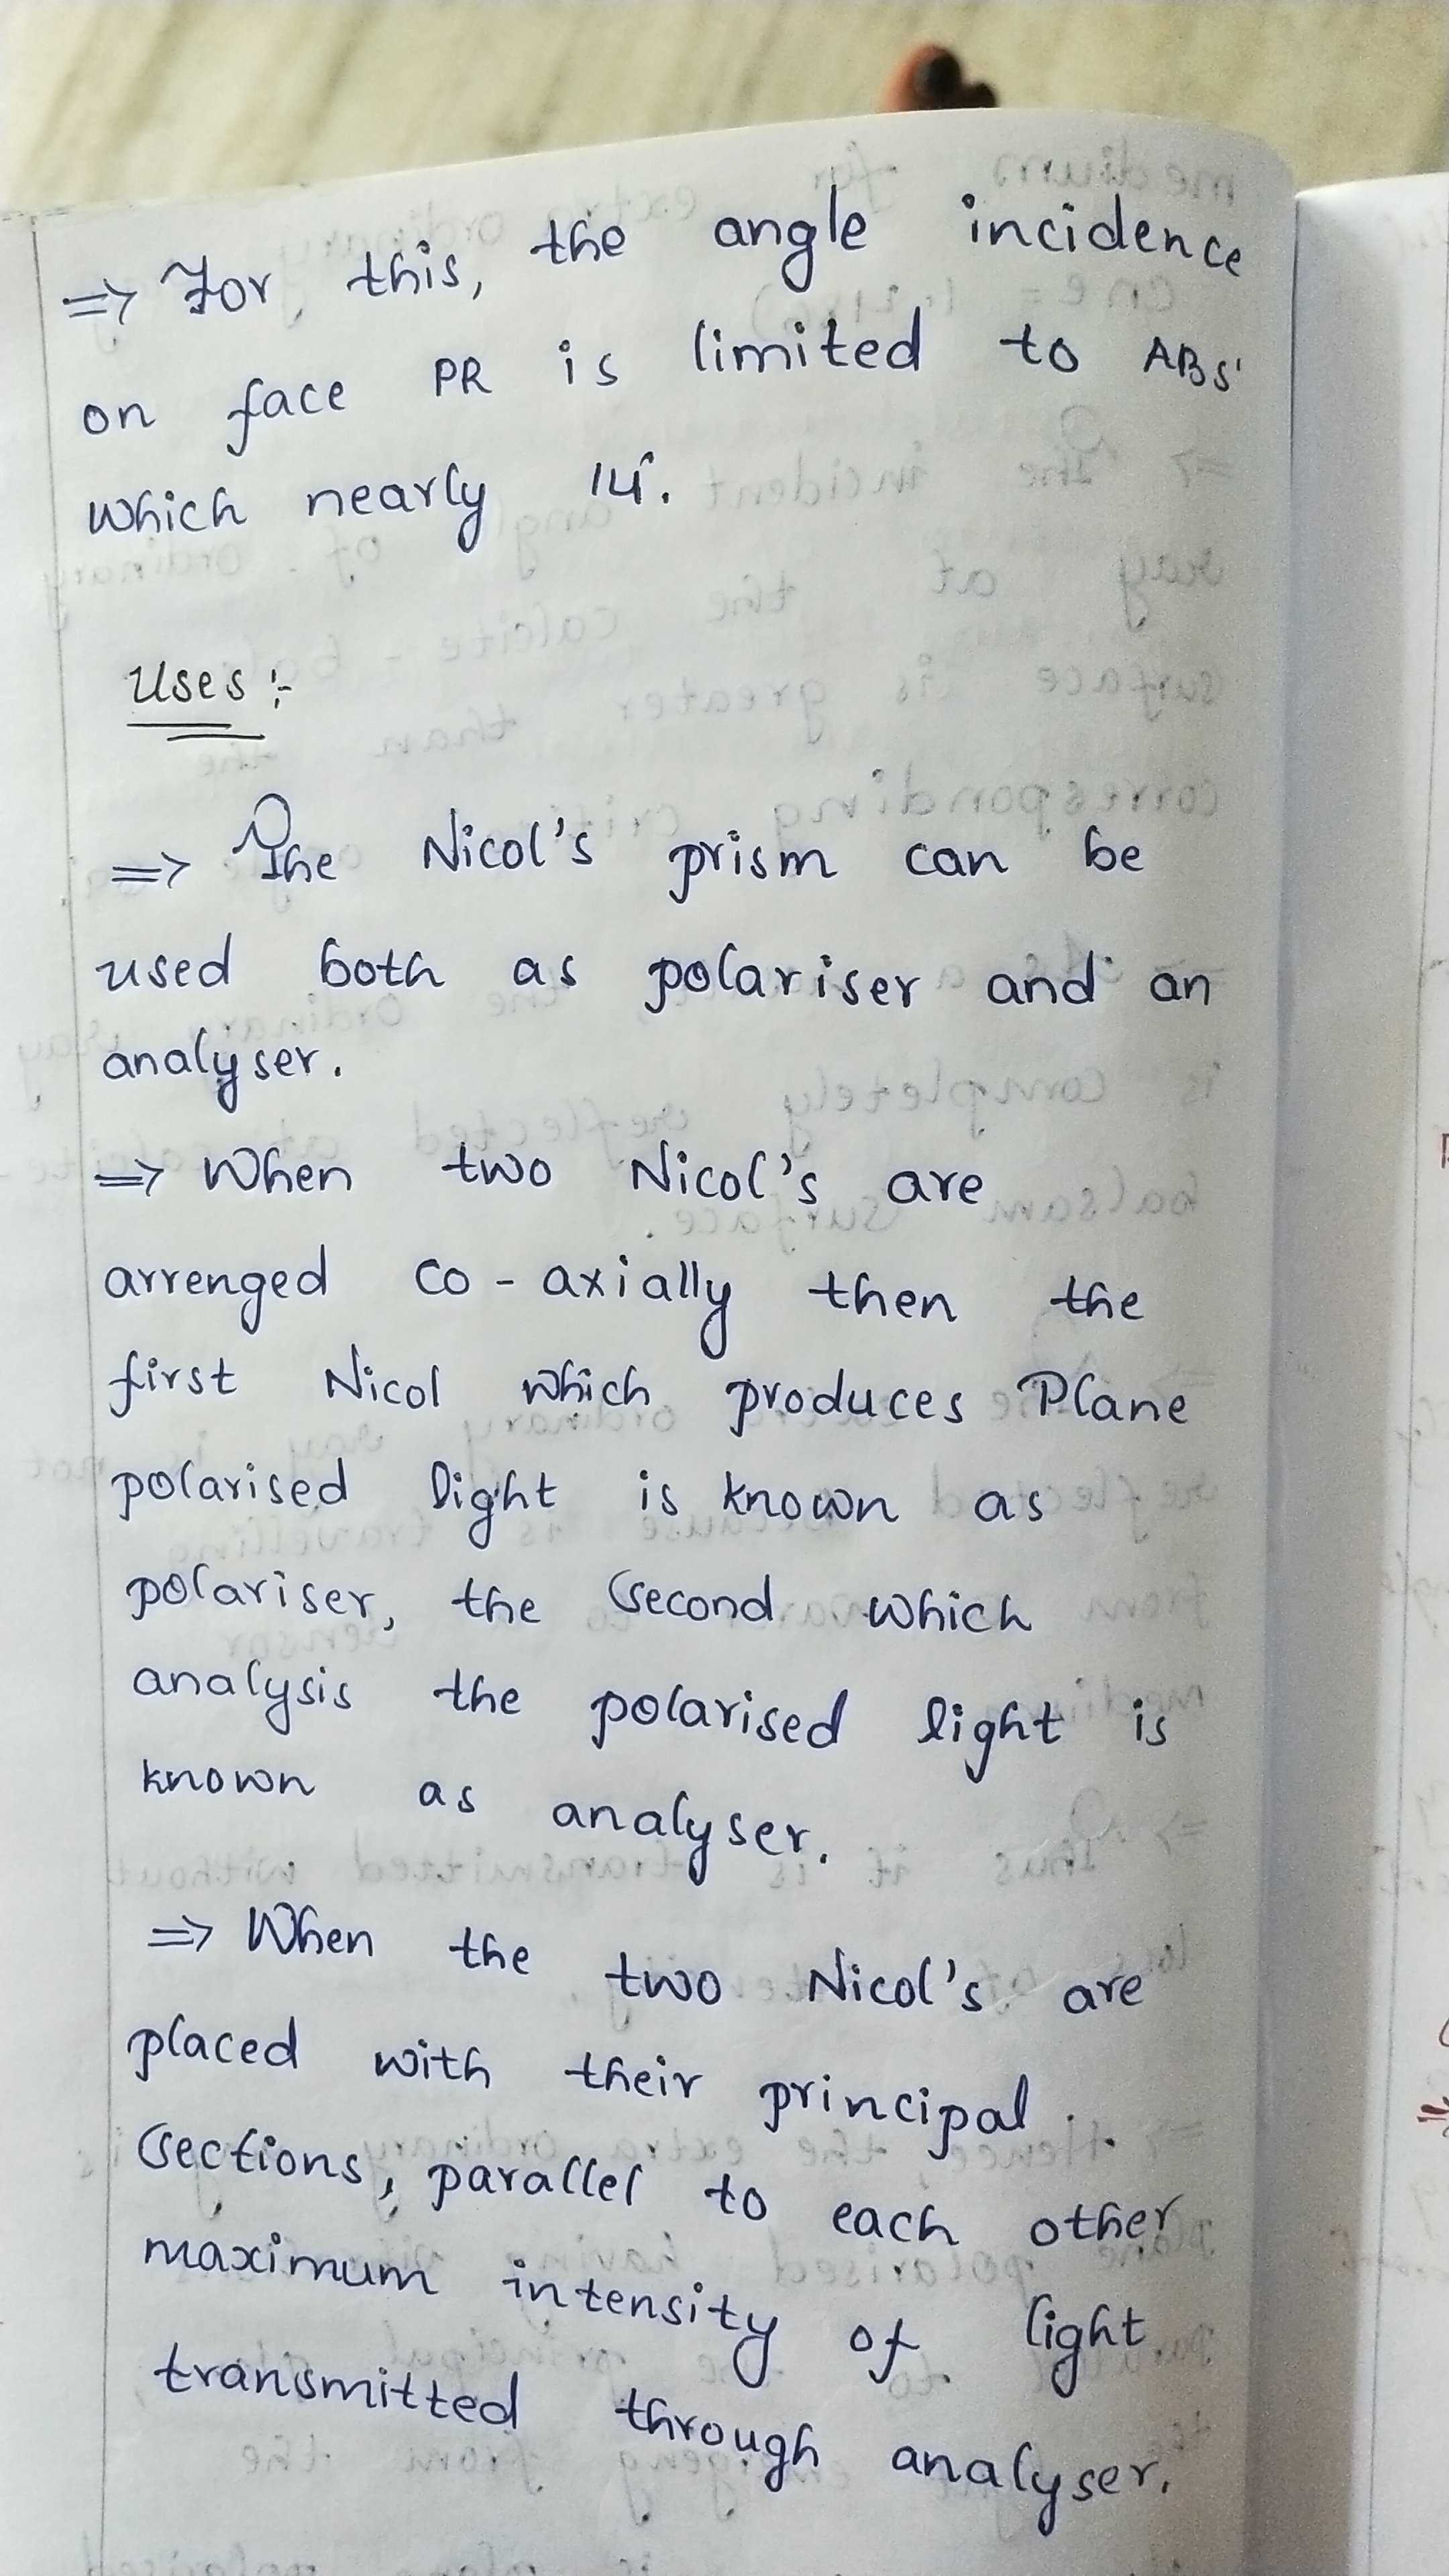 => For this, the angle incidence
on face PR is limited to ABS'
which nearly 14°.
Uses :-
=> The Nicol's prism can be
used both as polariser and an
analyser.
=> When two Nicol's are
arrenged co-axially then the
first Nicol which produces Plane
polarised light is known as
polariser, the second which
analysis the polarised light is
known as analyser.
=> When the two Nicol's are
placed with their principal
sections, parallel to each other
maximum intensity of light
transmitted through analyser.